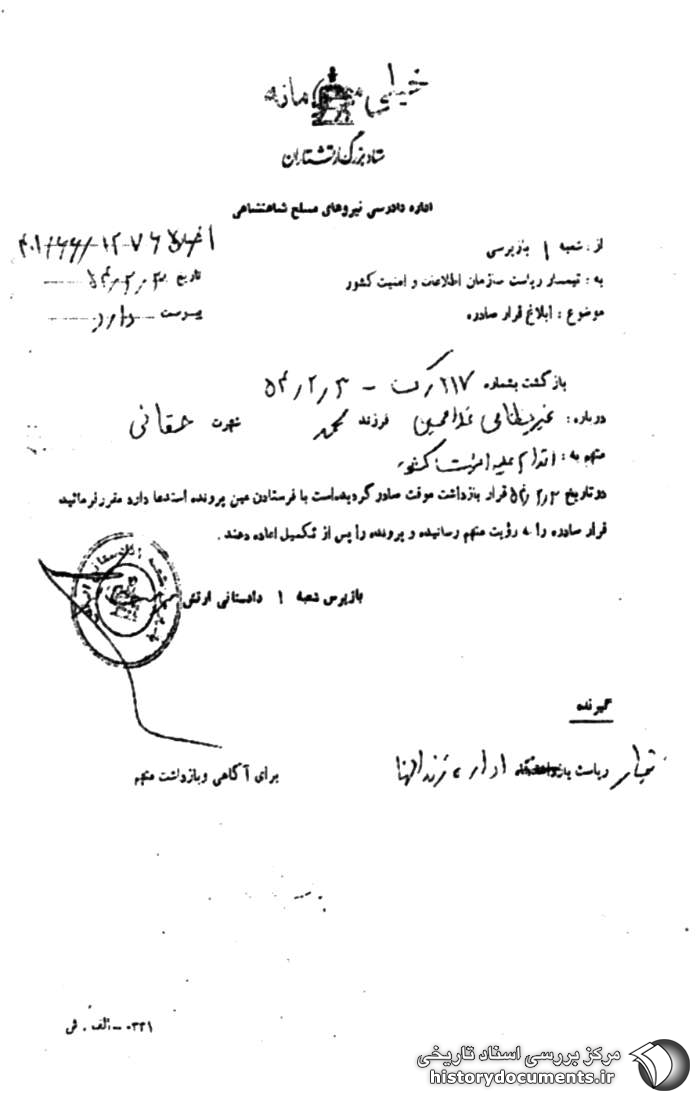 خیلی محرمانه
ستاد بزرگ ارتشتاران
اداره دادرسی نیروهای مسلح شاهنشاهی
از : شعبه ۱ بازپرسی
به : تیمسار ریاست سازمان اطلاعات و امنیت کشور
تاریخ ۵۴/۲/۳
موضوع : ابلاغ قرار صادره
پیوست دارد
بازگشت بشماره ۲۱۷/ک – ۵۴/۲/۳
درباره : غیرنظامی غلامحسین فرزند محمد شهرت حقانی
متهم به : اقدام علیه امنیت کشور
در تاریخ ۵۴/۲/۳ قرار بازداشت موقت صادر گردیده‌است با فرستادن عین پرونده استدعا دارد مقرر فرمائید
قرار صادره را به رؤیت متهم رسانیده و پرونده را پس از تکمیل اعاده دهند .
بازپرس شعبه ۱ دادستانی ارتش
گیرنده
تیمسار ریاست اداره زندانها
برای آگاهی و بازداشت متهم
۰۳۳۱ – الف . ش
مرکز بررسی اسناد تاریخی
historydocuments.ir